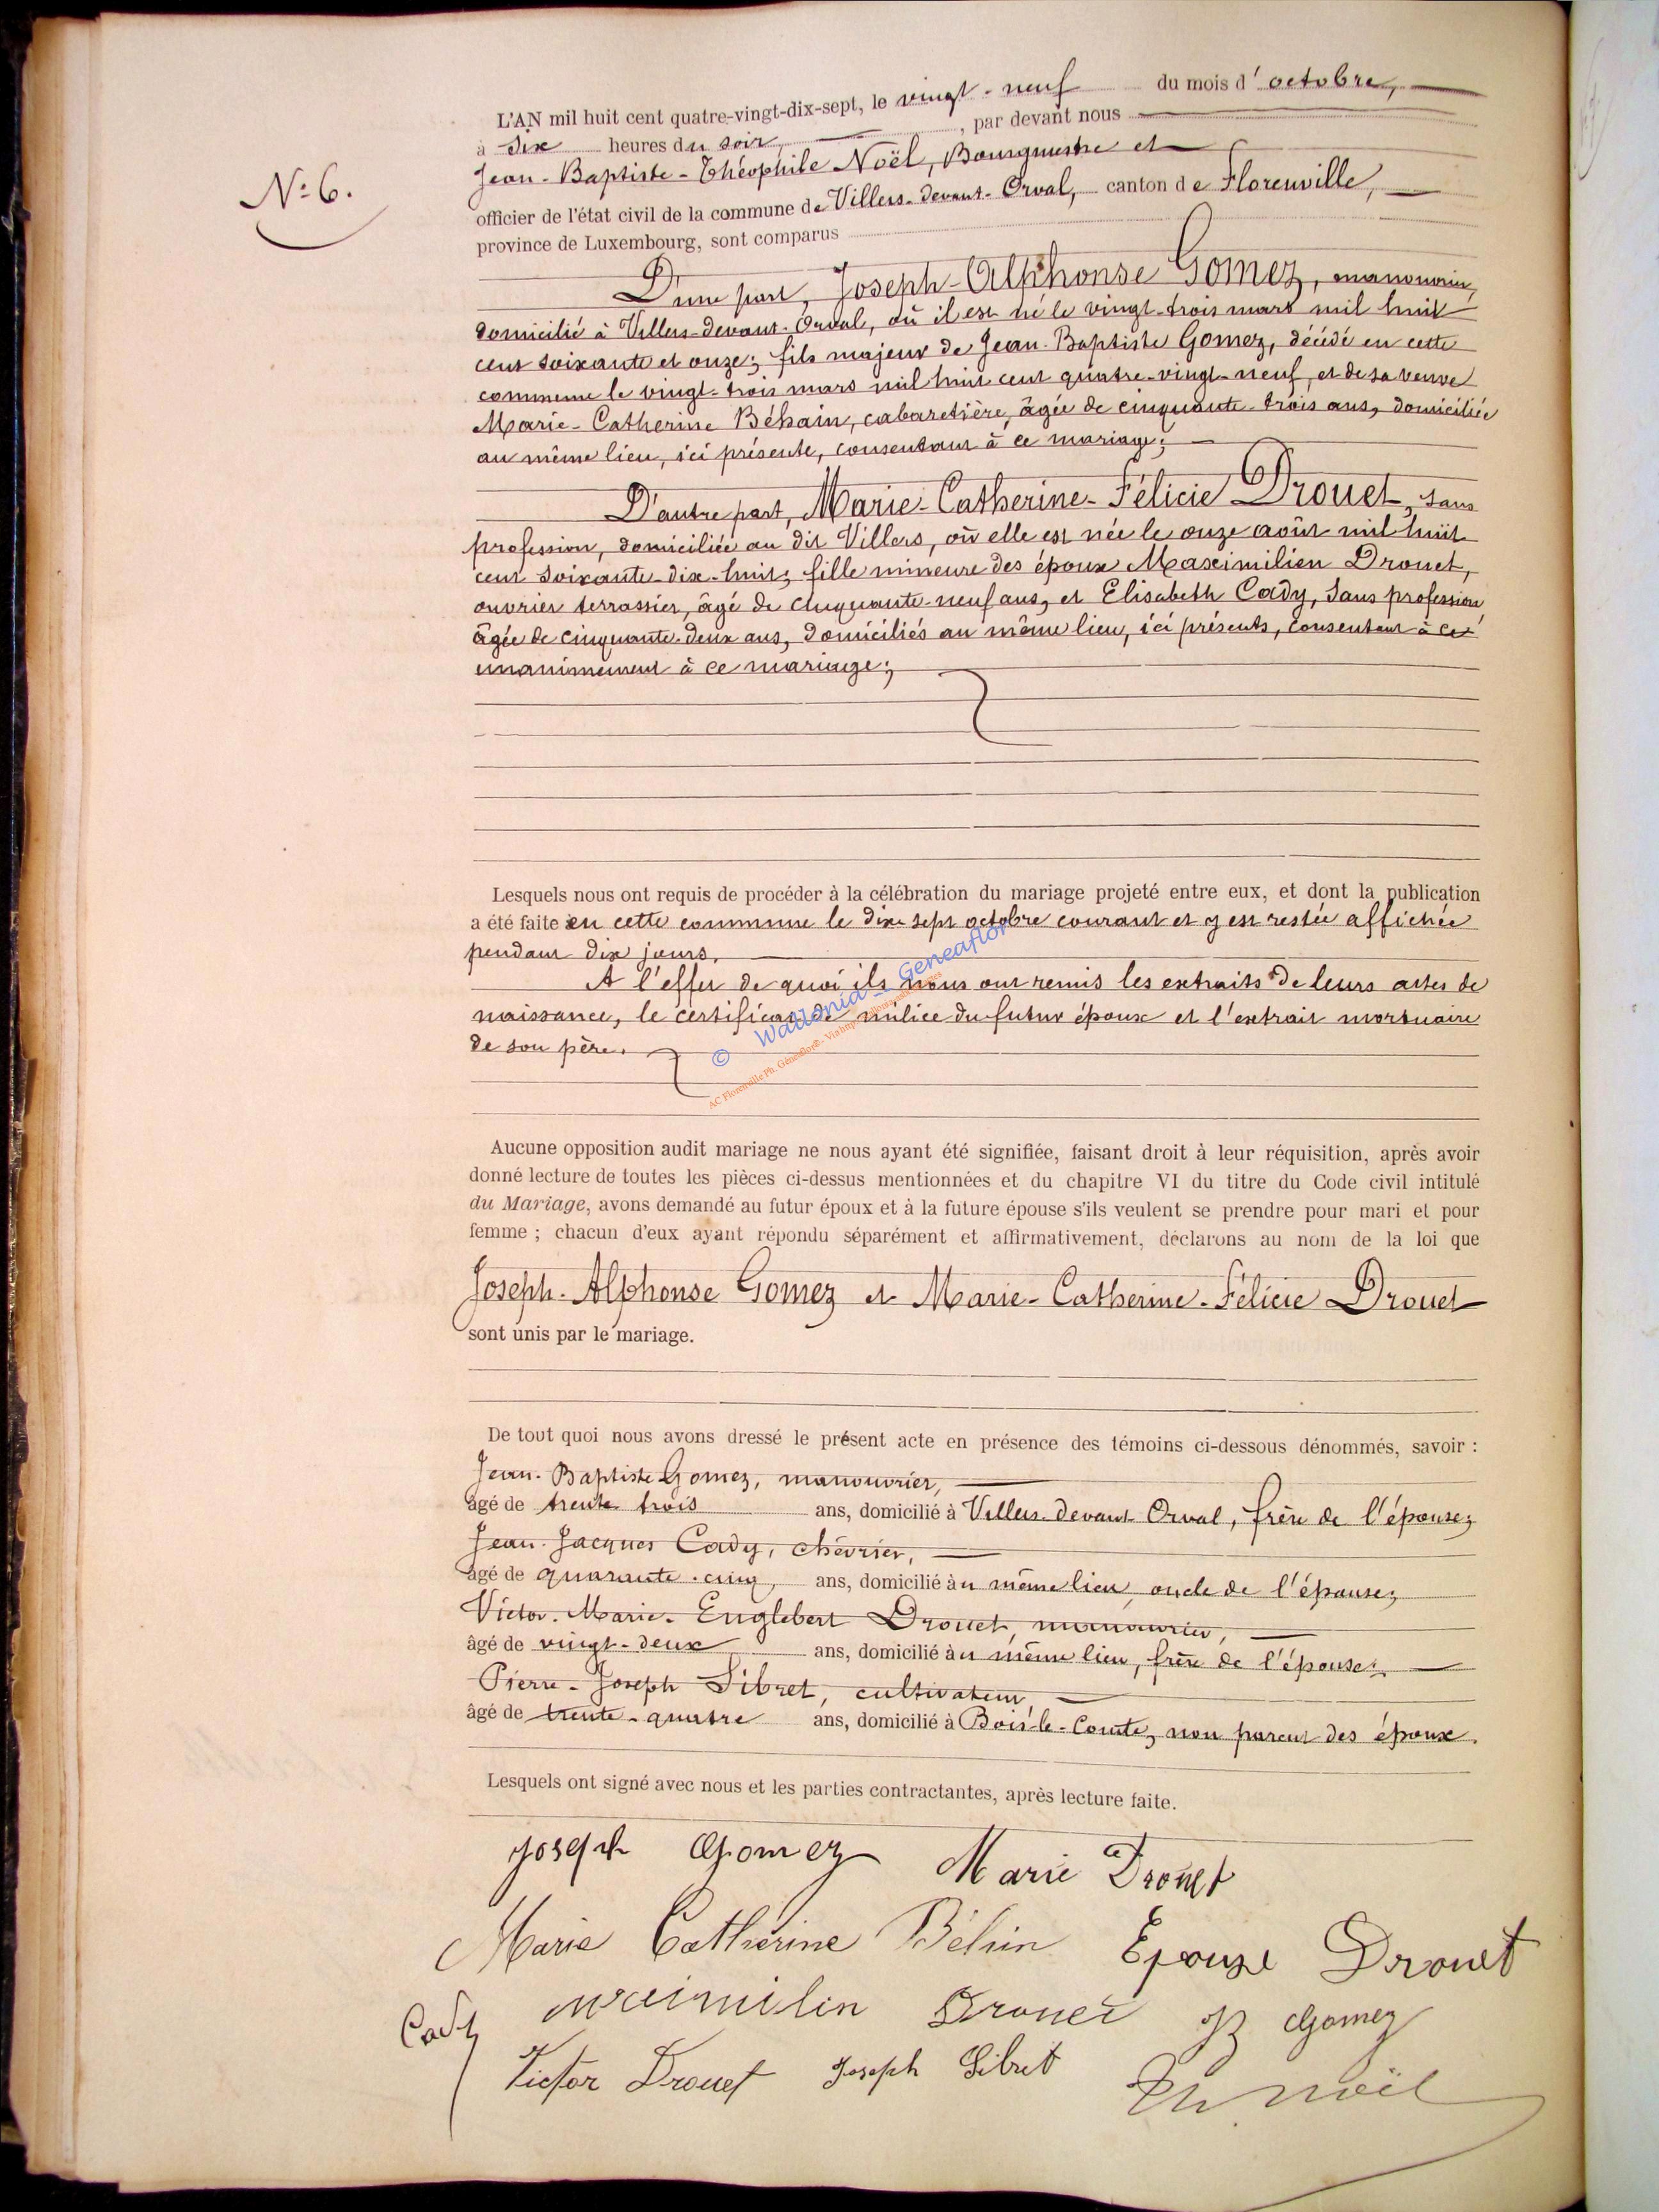 N° 6.
L'AN mil huit cent quatre-vingt-dix-sept, le vingt-neuf du mois d'octobre,
à six heures du soir, par devant nous
Jean-Baptiste-Théophile Noël, Bourgmestre et
officier de l'état civil de la commune de Villers-devant-Orval, canton de Florenville,
province de Luxembourg, sont comparus
D'une part, Joseph-Alphonse Gomez, manouvrier,
domicilié à Villers-devant-Orval, où il est né le vingt-trois mars mil huit
cent soixante et onze; fils majeur de Jean-Baptiste Gomez, décédé en cette
commune le vingt-trois mars mil huit cent quatre-vingt-neuf, et de sa veuve
Marie-Catherine Béhain, cabaretière, âgée de cinquante-trois ans, domiciliée
au même lieu, ici présente, consentant à ce mariage;
D'autre part, Marie-Catherine-Félicie Drouet, sans
profession, domiciliée au dit Villers, où elle est née le onze août mil huit
cent soixante-dix-huit; fille mineure des époux Maximilien Drouet,
ouvrier terrassier, âgé de cinquante-neuf ans, et Elisabeth Cady, sans profession,
âgée de cinquante-deux ans, domiciliés au même lieu, ici présents, consentant à ce
unanimement à ce mariage;
Lesquels nous ont requis de procéder à la célébration du mariage projeté entre eux, et dont la publication
a été faite en cette commune le dix-sept octobre courant et y est restée affichée
pendant dix jours.
A l'effet de quoi ils nous ont remis les extraits de leurs actes de
naissance, le certificat de milice du futur époux et l'extrait mortuaire
de son père.
© Wallonia - Geneaflor
AC Florenville Ph. Généaflor
Aucune opposition audit mariage ne nous ayant été signifiée, faisant droit à leur réquisition, après avoir
donné lecture de toutes les pièces ci-dessus mentionnées et du chapitre VI du titre du Code civil intitulé
du Mariage, avons demandé au futur époux et à la future épouse s'ils veulent se prendre pour mari et pour
femme ; chacun d'eux ayant répondu séparément et affirmativement, déclarons au nom de la loi que
Joseph-Alphonse Gomez et Marie-Catherine-Félicie Drouet
sont unis par le mariage.
De tout quoi nous avons dressé le présent acte en présence des témoins ci-dessous dénommés, savoir :
Jean-Baptiste Gomez, manouvrier,
âgé de trente trois ans, domicilié à Villers-devant-Orval, frère de l'épouse;
Jean-Jacques Cady, chévrier,
âgé de quarante-cinq, ans, domicilié au même lieu, oncle de l'épouse;
Victor-Marie-Englebert Drouet, manouvrier,
âgé de vingt-deux ans, domicilié au même lieu, frère de l'épouse;
Pierre-Joseph Libret, cultivateur,
âgé de trente-quatre ans, domicilié à Bois-le-Comte, non parent des époux.
Lesquels ont signé avec nous et les parties contractantes, après lecture faite.
Joseph Gomez Marie Drouet
Marie Catherine Béhin Epouse Drouet
Cady Drouet JB Gomez
Victor Drouet Joseph Libret Th Noël